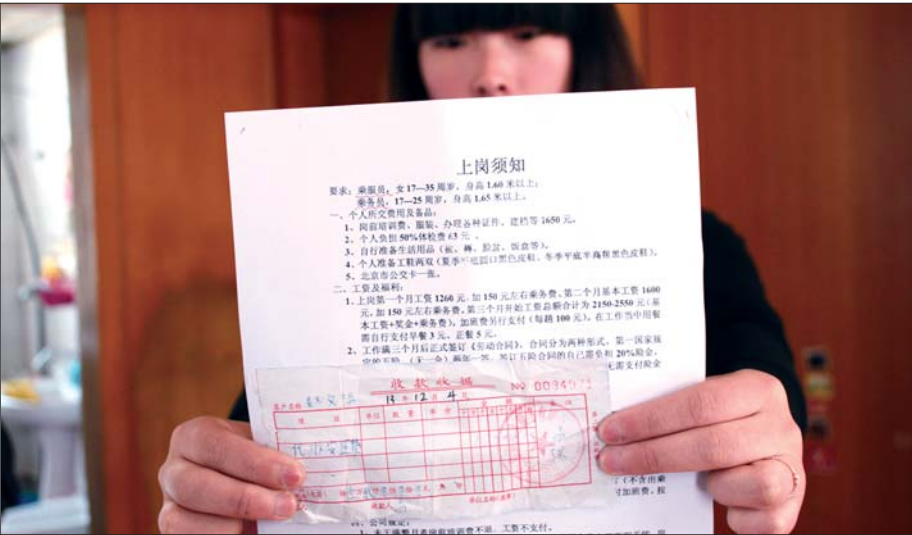 上岗须知
要求：乘服员，女17—35周岁，身高1.60米以上；
乘务员，17—25周岁，身高1.65米以上。
一、个人所交费用及备品：
1、岗前培训费、服装、办理各种证件、建档等1650元。
2、个人负担50%体检费63元。
3、自行准备生活用品（被、褥、脸盆、饭盒等）。
4、个人准备工鞋两双（夏季平底圆口黑色皮鞋、冬季平底半高靿黑色皮鞋）。
5、北京市公交卡一张。
二、工资及福利：
1、上岗第一个月工资1260元，加150元左右乘务费。第二个月基本工资1600
元，加150元左右乘务费。第三个月开始工资总额合计为2150-2550元（基
本工资+奖金+乘务费），加班费另行支付（每趟100元）。在工作当中用餐
需自行支付早餐3元，正餐5元。
2、工作满三个月后正式签订《劳动合同》，合同分为两种形式，第一国家规
定的五险，（无一金）两年一签，签订五险合同的自己需负担20%险金，
无需支付险金
收款收据
№
13年12月4日
项 目 单位 数量 单价 金额
收款人
（不含出乘
加班费。按
四、公司规定：
1、未干满整月者岗前培训费不退，工资不支付。